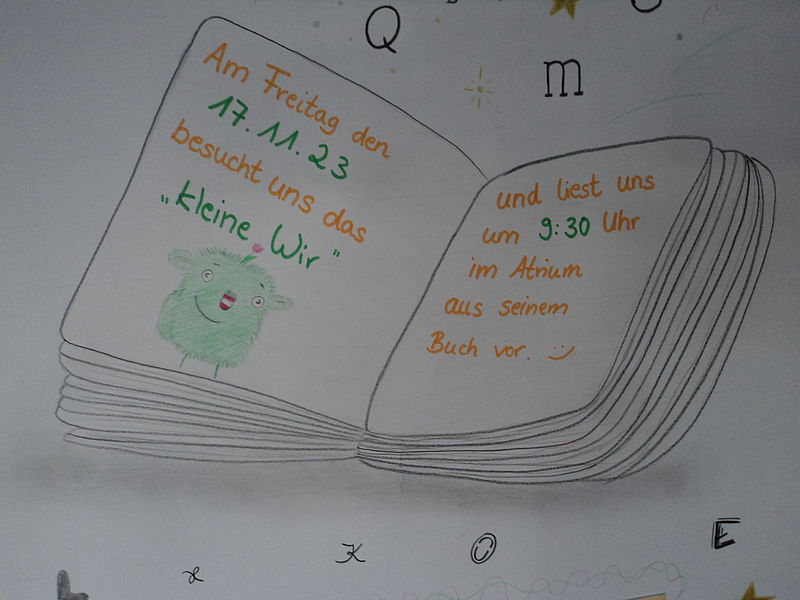 Q
m
Am Freitag den
17.11.23
besucht uns das
„kleine Wir"
und liest uns
um 9:30 Uhr
im Atrium
aus seinem
Buch vor. :)
x
K
O
E